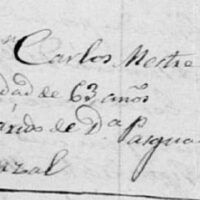 Carlos Mestre
dad de 63 años
arido de Dª Pasqua
azal